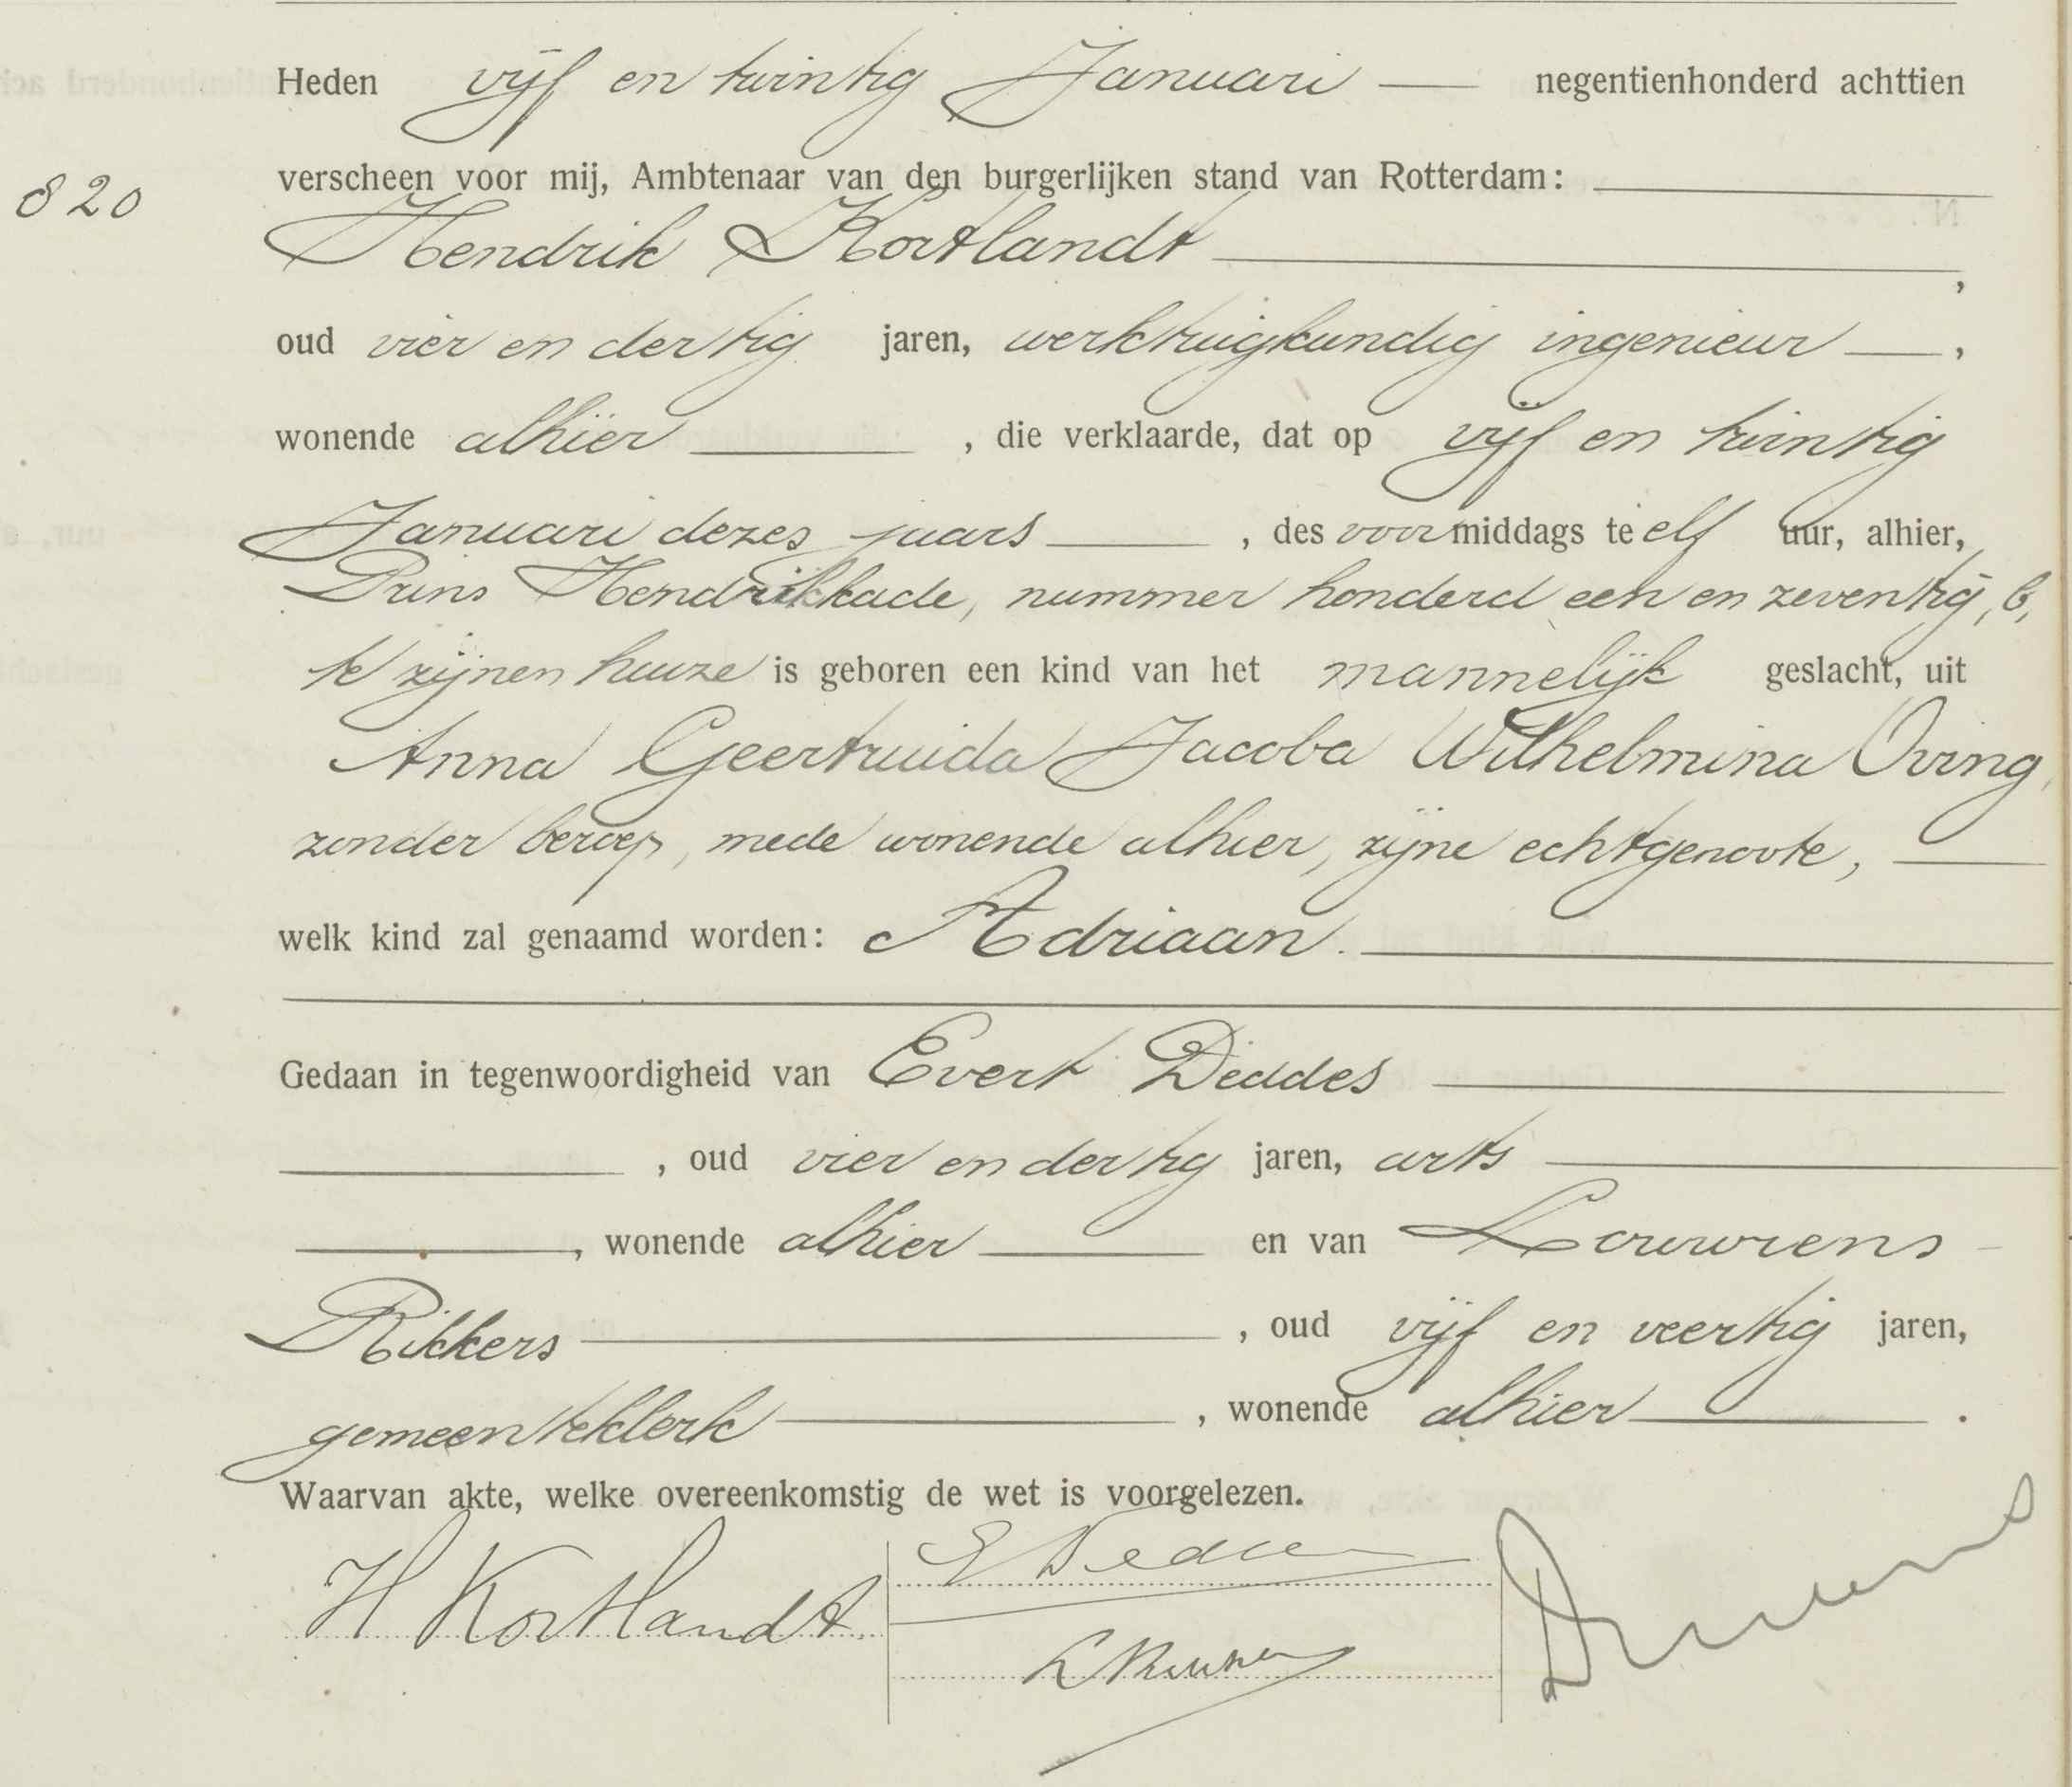 Heden vijf en twintig Januari — negentienhonderd achttien
820
verscheen voor mij, Ambtenaar van den burgerlijken stand van Rotterdam:
Hendrik Kortlandt,
oud vier en dertig jaren, werktuigkundig ingenieur —,
wonende alhier, die verklaarde, dat op vijf en twintig
Januari dezes jaars, des voormiddags te elf uur, alhier,
Prins Hendrikkade, nummer honderd een en zeventig, b,
te zijnen huize is geboren een kind van het mannelijk geslacht, uit
Anna Geertruida Jacoba Wilhelmina Oving,
zonder beroep, mede wonende alhier, zijne echtgenoote,
welk kind zal genaamd worden: Adriaan.
Gedaan in tegenwoordigheid van Evert Deddes
, oud vier en dertig jaren, arts
, wonende alhier en van Louwrens
Rikkers, oud vijf en veertig jaren,
gemeenteklerk, wonende alhier.
Waarvan akte, welke overeenkomstig de wet is voorgelezen.
H Kortlandt.